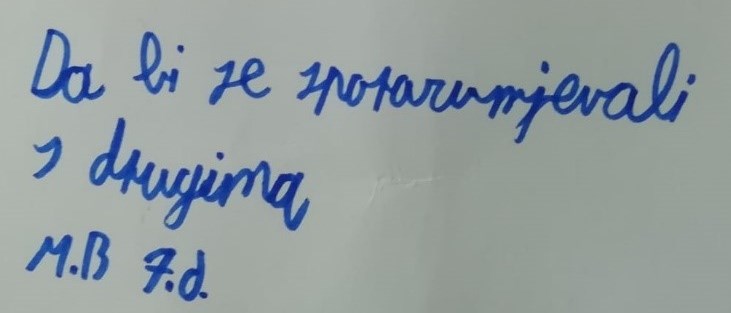 Da bi se sposarumjevali
s drugima
M.B 7.d.